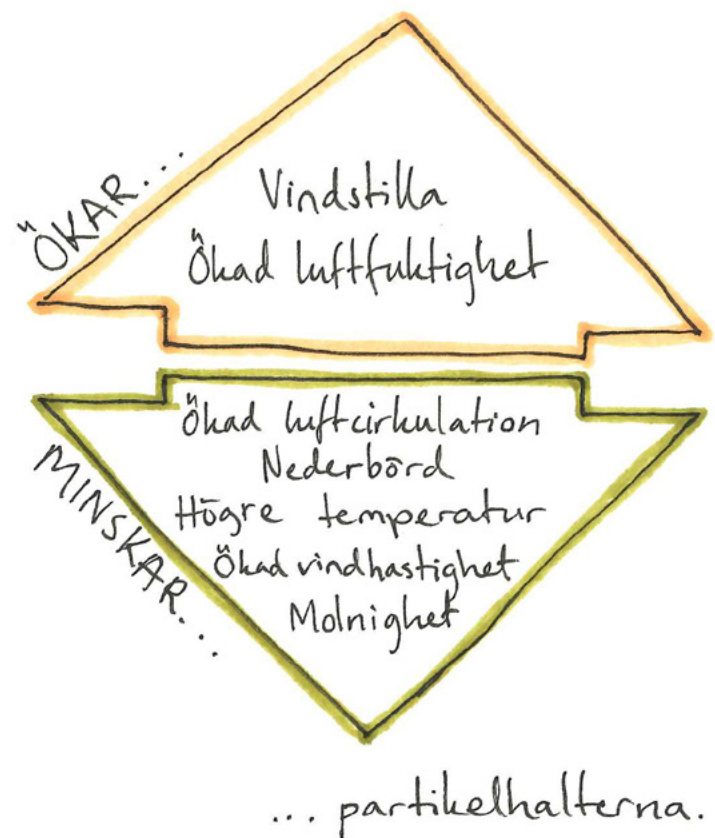 ÖKAR...
Vindstilla
Ökad luftfuktighet
MINSKAR...
Ökad luftcirkulation
Nederbörd
Högre temperatur
Ökad vindhastighet
Molnighet
... partikelhalterna.